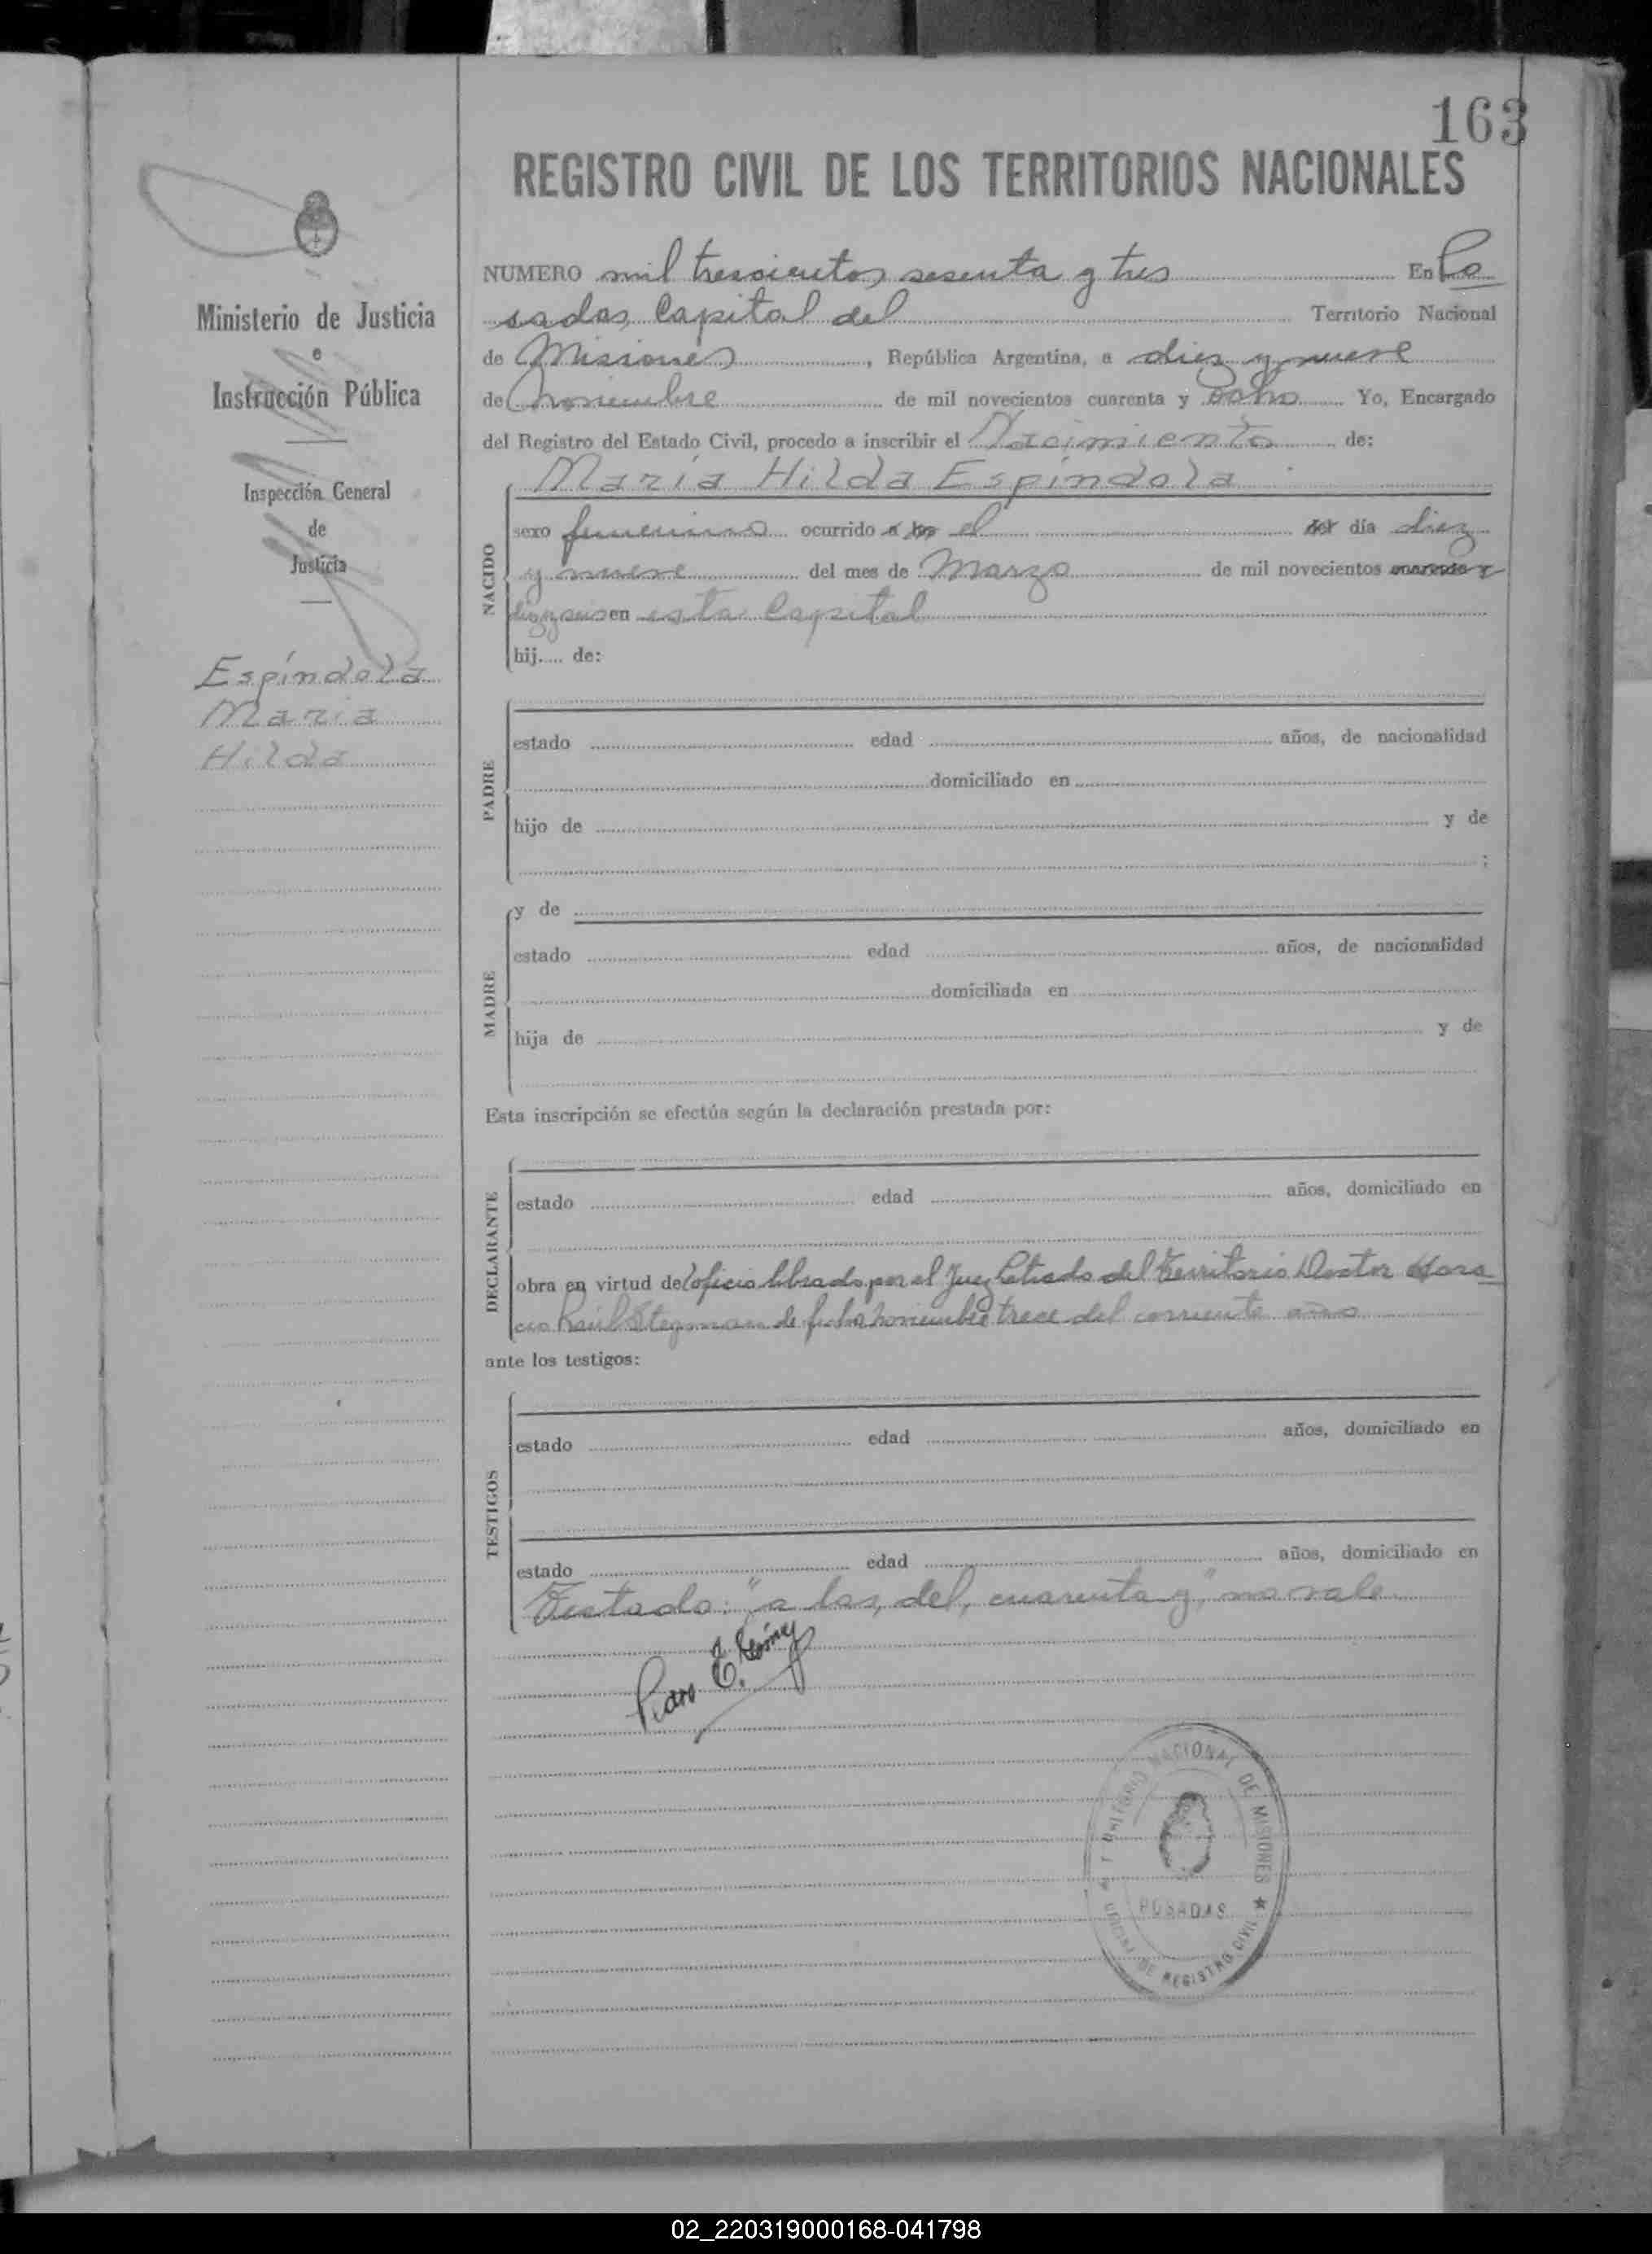 163
REGISTRO CIVIL DE LOS TERRITORIOS NACIONALES
NUMERO mil trescientos sesenta y tres En Po
sadas, Capital del Territorio Nacional
de Misiones, República Argentina, a diez y nueve
de noviembre de mil novecientos cuarenta y ocho Yo, Encargado
del Registro del Estado Civil, procedo a inscribir el Nacimiento de:
María Hilda Espíndola
NACIDO
sexo femenino ocurrido a las el del día diez
y nueve del mes de Marzo de mil novecientos cuarenta y
en esta Capital
hij..... de:
PADRE
estado edad años, de nacionalidad
domiciliado en
hijo de y de
;
MADRE
y de
estado edad años, de nacionalidad
domiciliada en
hija de y de
Esta inscripción se efectúa según la declaración prestada por:
DECLARANTE
estado edad años, domiciliado en
obra en virtud del oficio librado por el Juez Letrado del Territorio Doctor Hora
cio Raúl Stegman de fecha noviembre trece del corriente año
ante los testigos:
TESTIGOS
estado edad años, domiciliado en
estado edad años, domiciliado en
Testado: "a las, del, cuarenta y," no vale
Pedro E.
TERRITORIO NACIONAL DE MISIONES
POSADAS
OFICINA DE REGISTRO CIVIL
Ministerio de Justicia
e
Instrucción Pública
Inspección General
de
Justicia
Espíndola
María
Hilda
02_220319000168-041798